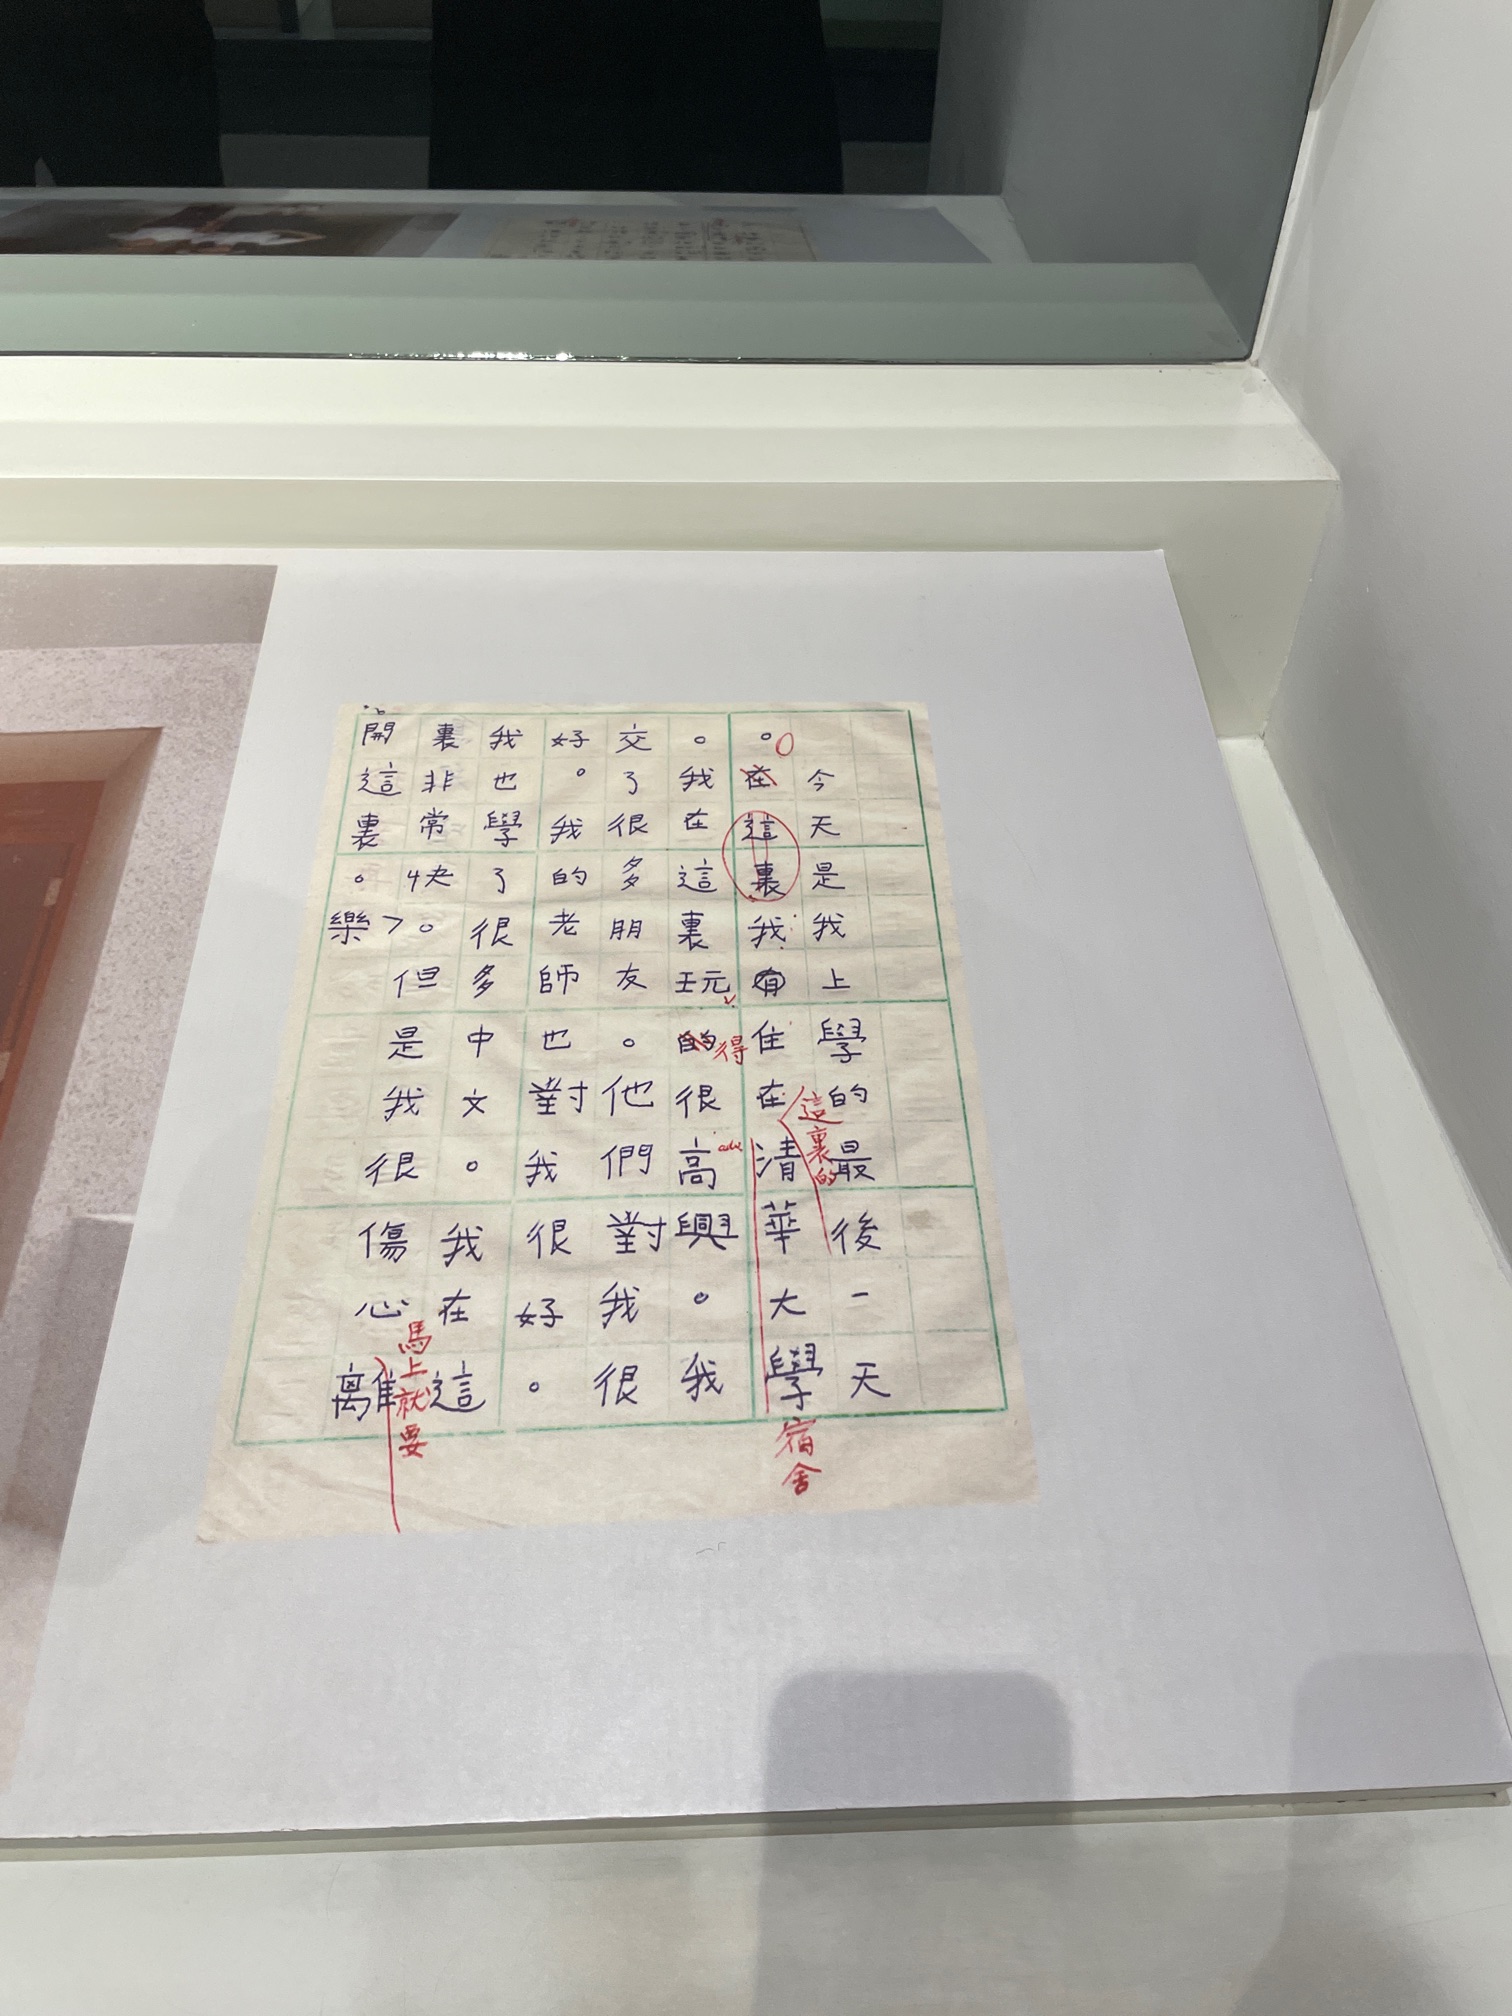 今天是我上學的最後一天
。在這裏我有住在清華大學
這裏的
宿舍
。我在這裏玩的很高興。我
得
交了很多朋友。他們對我很
好。我的老師也對我很好。
我也學了很多中文。我在這
裏非常快。但是我很傷心離
樂
馬上就要
開這裏。